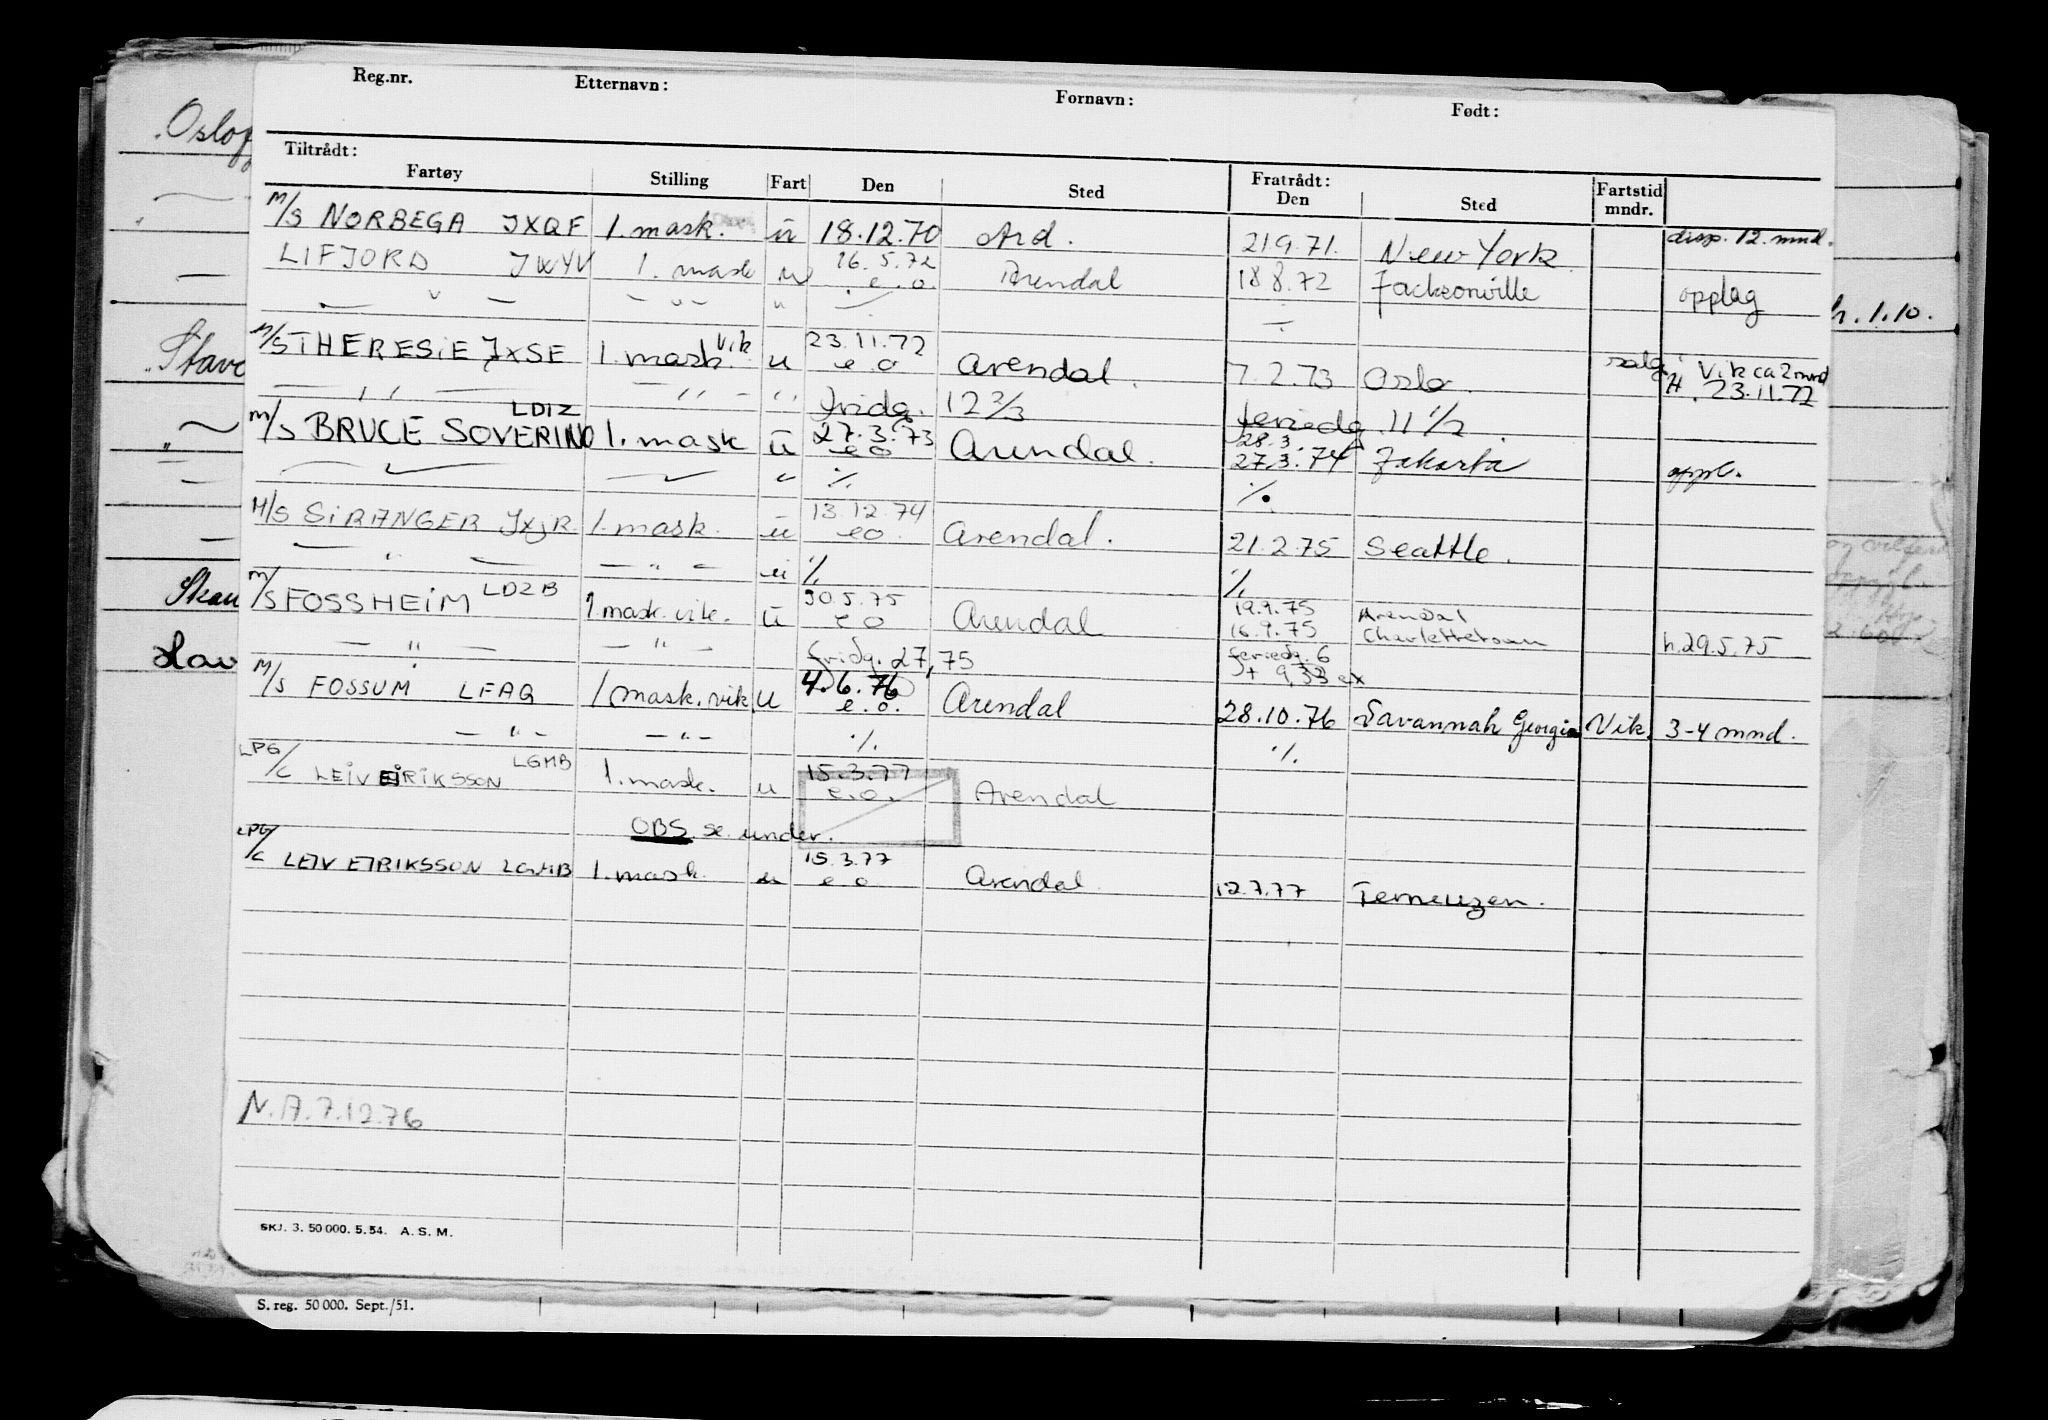 Reg.nr. Etternavn: Fornavn: Født:
Tiltrådt: Fratrådt:
Fartøy Stilling Fart Den Sted Den Sted Fartstid mndr.
M/S NORBEGA JXQF 1. mask. ū 18.12.70 Ard. 21.9.71. New York disp. 12. mnd.
LIFJORD JWYV 1. mask u 16.5.72 e.o. Arendal 18.8.72 Jacksonville opplag
— " — — " — " ./. ./.
M/S THERESIE JXSE 1. mask. vik u 23.11.72 e o Arendal. 7.2.73 Oslo. salg Vik ca 2 mnd
— " — — " — " fridg. 12 2/3 feriedg. 11 1/2. H. 23.11.72
M/S BRUCE SOVERINO LDIZ 1. mask ū 27.3.73 e o Arendal. 28.3. 27.3.74 Jakarta oppl.
./. ./.
M/S SIRANGER JXJR 1. mask. ū 13.12.74 eo. Arendal. 21.2.75 Seattle.
— " — — " — ./. ./.
M/S FOSSHEIM LDZB 1 mask. vik. ū 30.5.75 e o Arendal 19.9.75 Arendal
16.9.75 Charlettetown h.29.5.75
— " — — " — fridg. 27,75 feriedg. 6 + 9,33 ex
M/S FOSSUM LFAQ 1 mask. vik. u 4.6.76 e.o. Arendal 28.10.76 Savannah Georgia Vik. 3-4 mnd.
— " — — " — ./. ./.
LPG/C LEIV EIRIKSSON LGMB 1. mask. u 15.3.77 e.o. Arendal
OBS. se under.
LPG/C LEIV EIRIKSSON LGMB 1. mask. u 15.3.77 e o Arendal 12.7.77 Terneuzen.
N.A. 7.12.76
SKJ. 3. 50 000. 5. 54. A. S. M.
S. reg. 50 000. Sept./51.
h. 1.10.